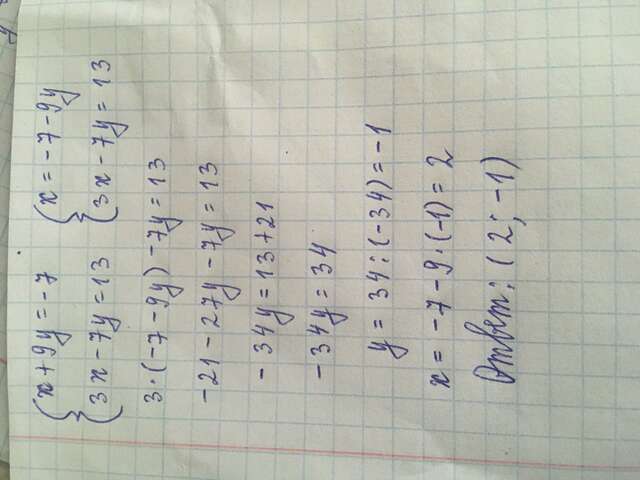 {x+9y=-7 {x=-7-9y
{3x-7y=13 {3x-7y=13
3·(-7-9y)-7y=13
-21-27y-7y=13
-34y=13+21
-34y=34
y=34:(-34)=-1
x=-7-9·(-1)=2
Ответ: (2; -1)